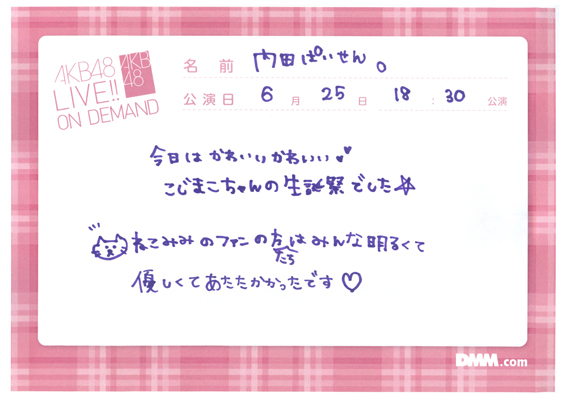 AKB48
LIVE!!
ON DEMAND
AKB
48
名前 内田ぱいせん。
公演日 6月 25日 18:30 公演
今日は かわいいかわいい
こじまこちゃんの生誕祭でした☆
ねこみみのファンの方たちはみんな明るくて
優しくてあたたかかったです♡
DMM.com